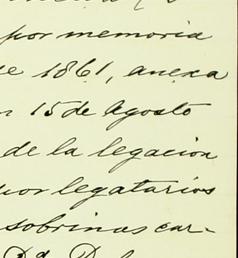 por memoria
de 1861, anexa
n 15 de Agosto
de la legacion
por legatarios
sobrinas car-